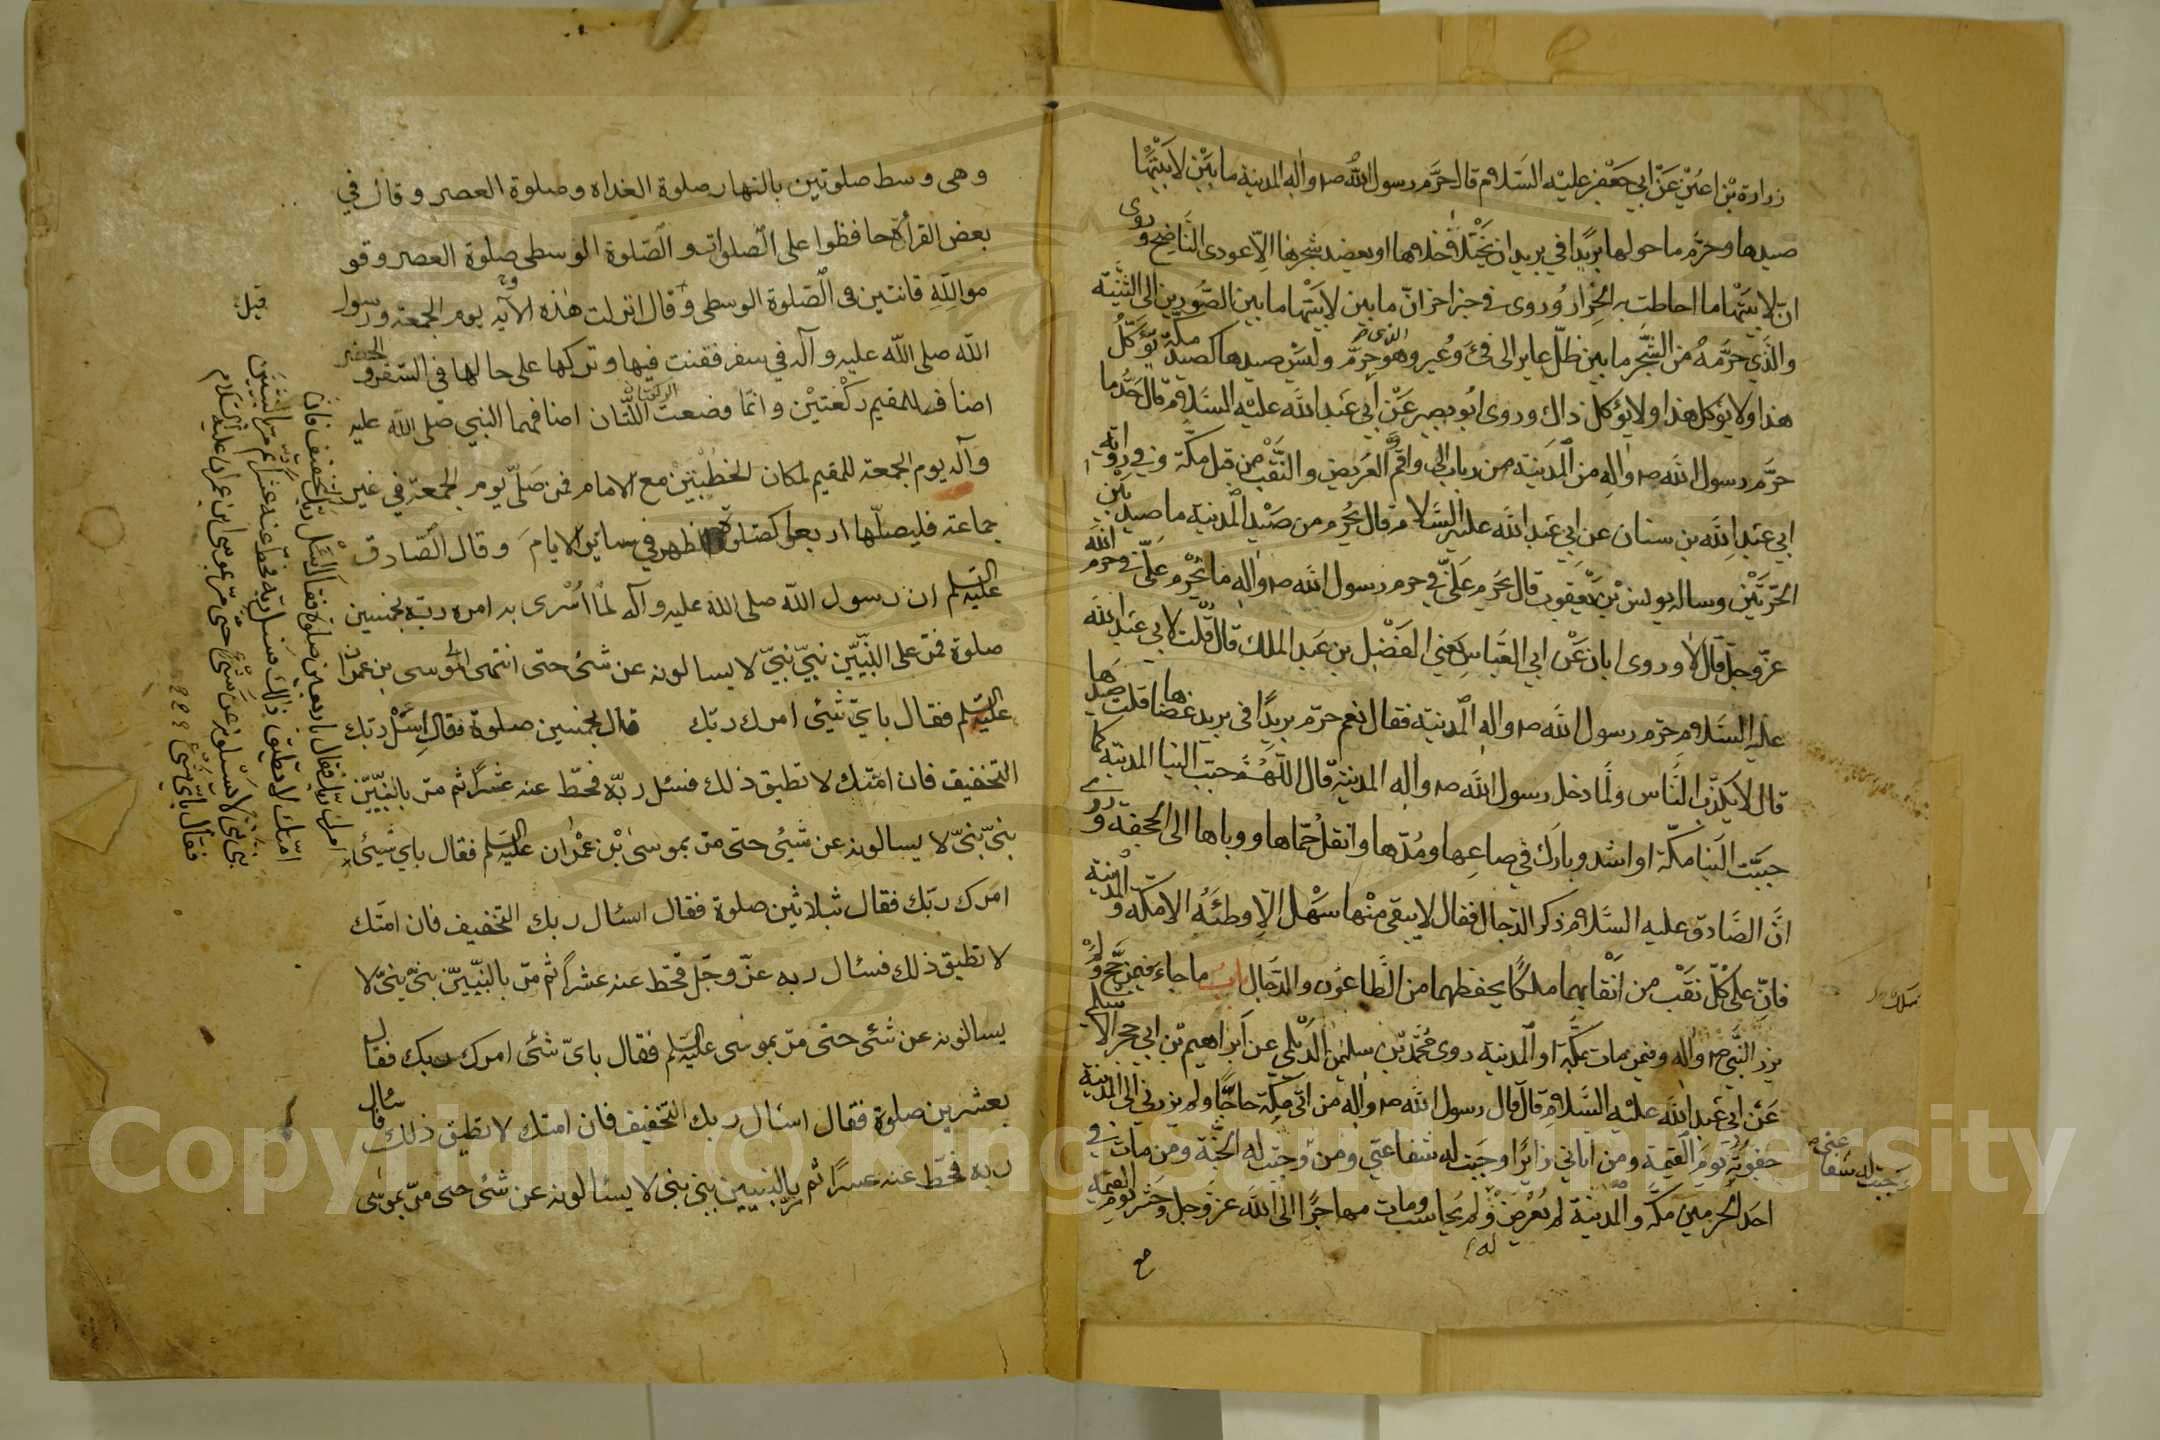 زرارة بْن اعْيَن عَنْ ابي جَعْفر عليْه السَّلام قال حَرَّم رسول الله صـ واٰله المدينة ما بَيْن لابَتْيها
صيدها وحرَّم ما حولها بريدًا في بريد ان يُخْتَلٰى خلاها او يعضد شجرها الّا عودى النَّاضح وروى
انّ لابتيْها ما احاطت به الحِرارُ وروى في خبر اخر انّ ما بين لابَتْيها ما بين الصّورين الى الثَّنيّة
والَّذي حرَّمهُ من الشَّجر ما بين ظلّ عاير الى فئ وُعير وهو الذي حرّم وليْسَ صيدها كصيد مكّة يُؤكلُ
هذا ولا يؤكل هذا ولا يؤكل ذاك وروى ابُو بصير عَنْ ابي عَبد الله عليْه السَّلام قال حَدُّ ما
حرَّم رسول الله صـ واٰله من المدَينة من رباب الى واقم والعُرَيض والنَّقْب من قبل مكّة وفي رواية
ابي عَبد الله بن سنان عن ابي عَبد الله عليه السَّلام قال يحُرم من صَيْد المدينة ما صيد بَيْن
الحَرّتَيْن وساله يونس بْن يَعقوب قال يحَرم عَليَّ في حرم رسول الله صـ واٰله ما يحْرم عَليَّ في حرم الله
عزّ وجلّ قال لا وروى ابان عَنْ ابي العَباس يَعني الفَضْل بن عَبد الملك قال قُلت لابي عَبد الله
عليه السَّلام حرّم رسول الله صـ واله المدينة فقال نعم حرّم بريدًا في بريد غضاها قلت صيدها
قال لا يكذب النَّاس ولَّما دخل رسول الله صـ واٰله المدينة قال اللّٰهُمَّ حبّب الينا المدينة كما
حبّبت الَينا مكّة او اشد وبارك في صاعِها ومُدّها وانقل حُمّاها ووباها الى الجحفة وروى
انَّ الصَّادق عليه السَّلام ذكر الدّجال فقال لا يبقى مِنْها سَهْل الّا وطئَهُ الا مكّه والمدينة
فانّ على كُلّ نَقْب من انْقابهما ملكًا يحفظهما من الطَّاعون والدّجال باب ما جاءَ فيمن حَجَّ ولَمْ
يزر النَّبيَّ صـ واٰله وفيمن مات بمكّة او المدينة روى مُحَّمد بْن سليمٰن الدّيْلمي عن ابراهيم بْن ابي حجر الاسلمي
عَنْ ابي عَبد الله عليْه السَّلام قال قال رسول الله صـ واٰله من اتى مكّة حاجًّا ولم يزرني الى المدينة
جفوتُه يَومَ القيٰمة ومن اتاني زائرًا وجَبت له شفاعتي ومن وجَبت له شفاعتي وجَبت له الجَّنة ومن مات في
احَد الحرَمين مكَّة والمدينة لم يُعْرض ولم يُحاسب ومات مهاجرًا الى الله عزّ وجل وحَشر يوم القيٰمة
وهى وسط صلوتين بالنهار صلوة الغداه وصلوة العصر وقال في
بعض القرأة حافظوا على الصّلوات والصّلوة الوسطى صلوة العصر وقو
موا للهِ قانتين فى الصّلوة الوسطى وقال انزلت هٰذه الآيه يوم الجمعة ورسول
الله صلى الله عليه وآله في سفر فقنت فيها وتركها على حالها في السّفر والحضر
اضاف للمقيم ركْعتيْن وانّما وضعت الركعتان اللّتان اضافهما النبي صلى الله عليه
وآله يوم الجمعة للمقيم لمكان الخطبتَيْن مع الامام فمن صَلّى يوم الجمعة في غير
جماعة فليصلّها اربعًا كصَلوة الظهر في سائر الايام وقال الصّادق
عليه السّلم ان رسول الله صلى الله عليه وآله لمّا اُسْرى به امره ربّه بخمسين
صلوة فمرّ على النّبيّين نبيّ نبيّ لا يسالونه عن شئ حتى انتهى الى موسى بن عمران
عليه السّلم فقال بايّ شَئى امرك ربّك قال بخمسين صلوة فقال اِسئل ربّك
التخفيف فان امّتك لا تطيق ذلك فسئل ربّه فحّط عنه عشرًا ثم مرّ بالنّبيّين
نبيّ نبيّ لا يسالونه عن شئى حتى مرّ بموسىٰ بْن عمْران عليه السّلم فقال باي شئى
امرك ربّك فقال بثلاثين صلوة فقال اسئال ربك التخفيف فان امتك
لا تطيق ذلك فسئال ربه عزّ وجّل فحّط عنه عشراً ثم مرّ بالنّبيّين نبيّ نبيّ لا
يسالونه عن شئى حتى مرّ بموسى عليه السّلم فقال بايّ شئى امرك ربك فقال
بعشرين صلوة فقال اسئال ربك التّخفيف فان امتك لا تطيق ذلك فسئال
ربه فحّط عنه عشرًا ثم مرّ بالنبيين نبي نبي لا يسئالونه عن شئ حتى مرّ بموسٰى
Copyright © King Saud University